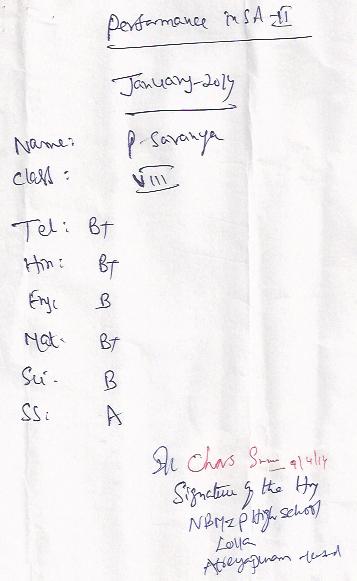 Performance in SA-II
January-2014
Name: P-Saranya
Class: VIII
Tel: B+
Hin: B+
Eng: B
Mat. B+
Sci. B
SS: A
9/4/14
Signature of the Hm
NBMZP High School
Lolla
Atreyapuram